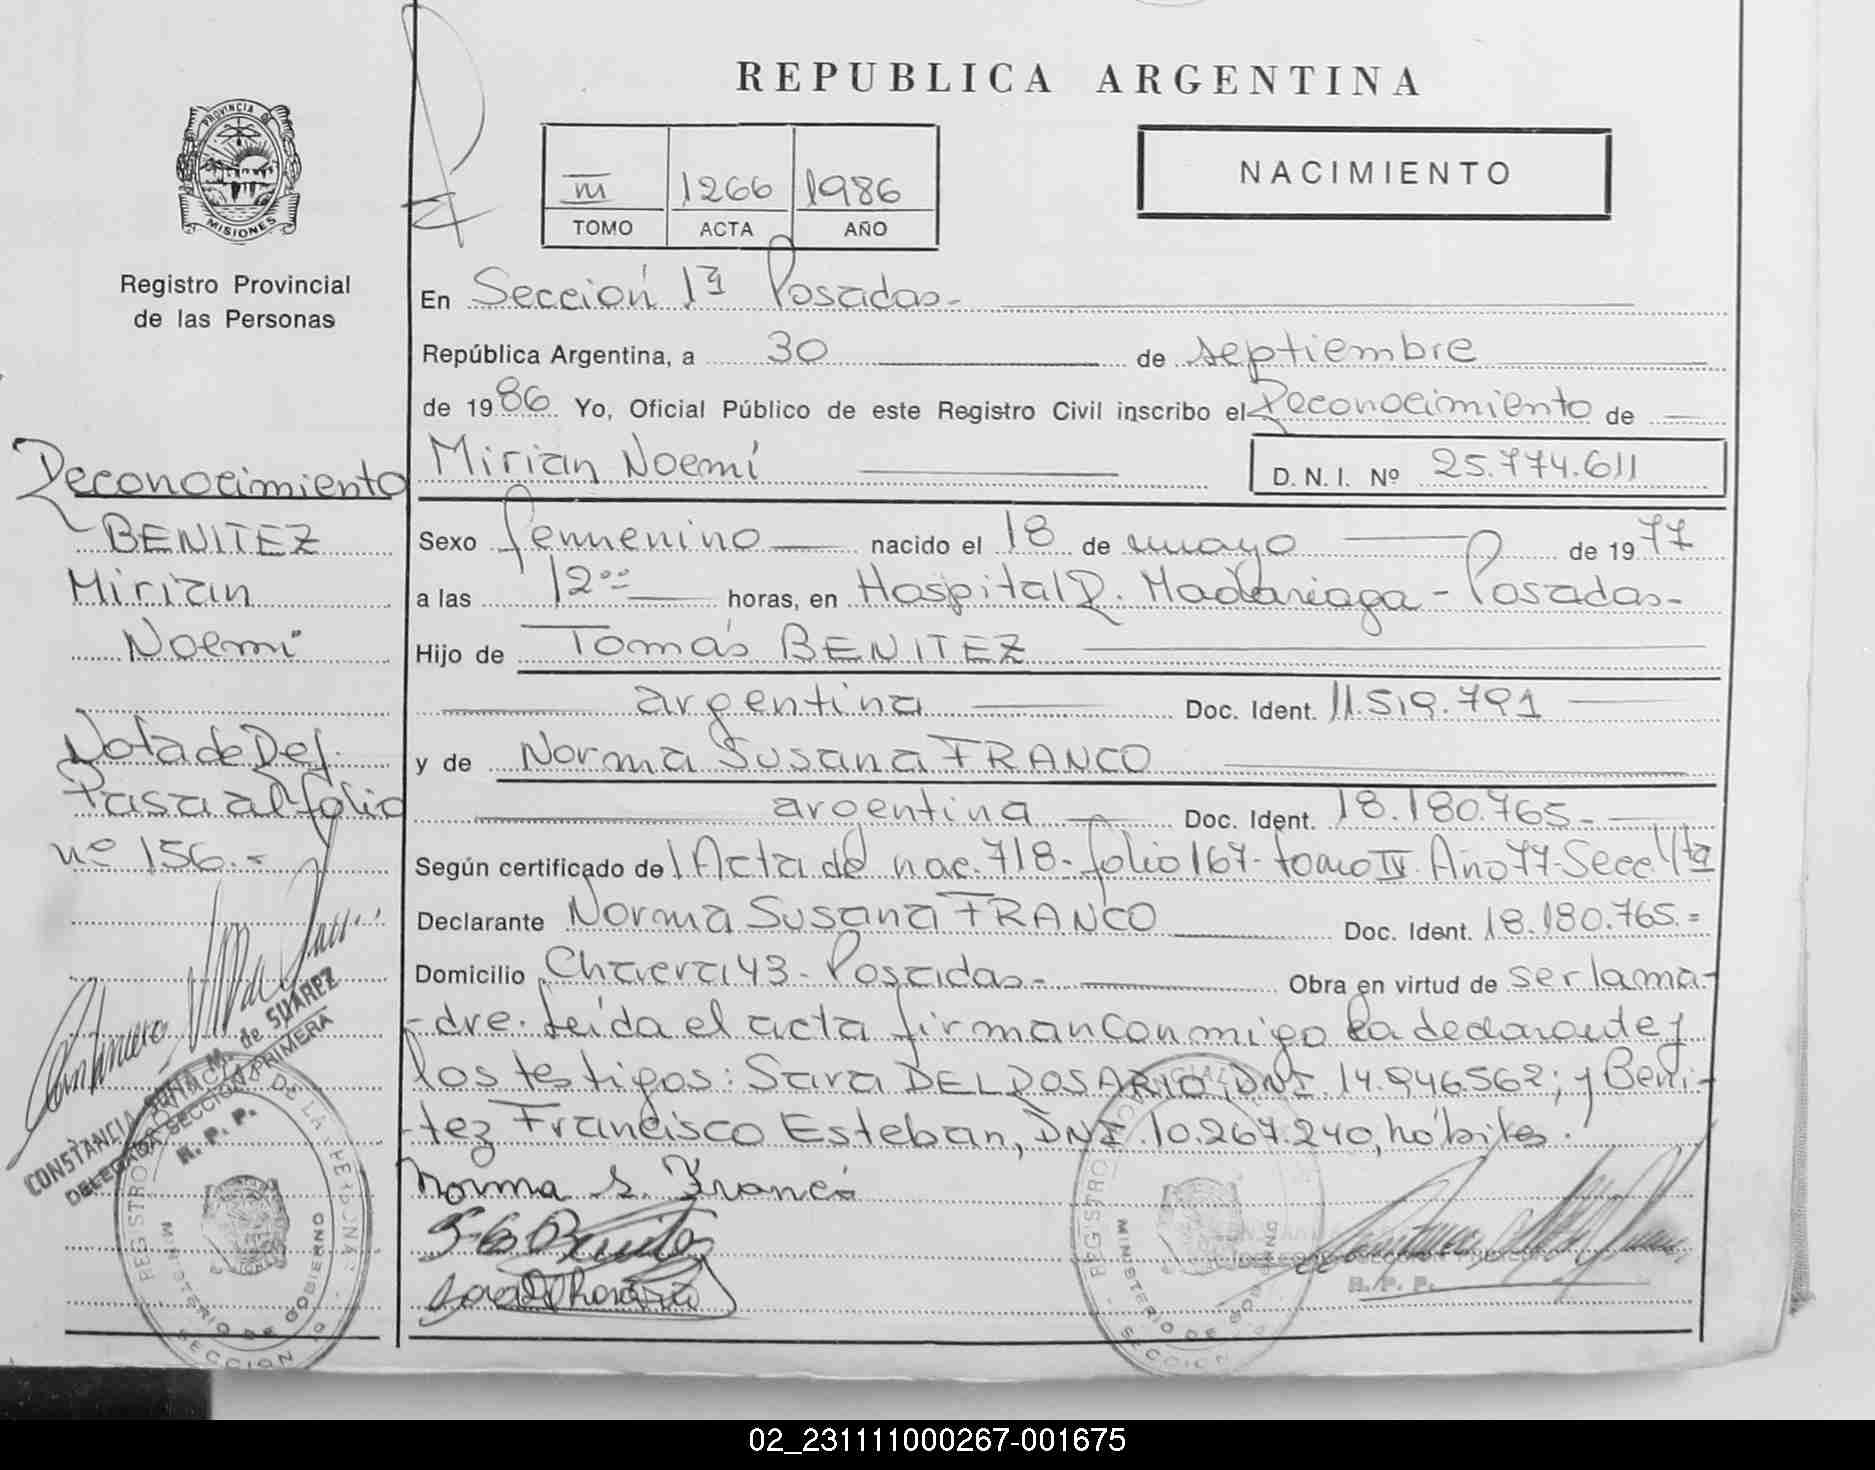 REPUBLICA ARGENTINA
PROVINCIA DE
MISIONES
Registro Provincial
de las Personas
III 1266 1986
TOMO ACTA AÑO
NACIMIENTO
En Sección 1ª Posadas-
República Argentina, a 30 de septiembre
de 1986 Yo, Oficial Público de este Registro Civil inscribo el Reconocimiento de
Mirian Noemí D. N. I. Nº 25.774.611
Sexo femenino nacido el 18 de mayo de 1977
a las 12 horas, en Hospital R. Madariaga - Posadas-
Hijo de Tomás BENITEZ
argentina Doc. Ident. 11.519.791
y de Norma Susana FRANCO
argentina Doc. Ident. 18.180.765-
Según certificado de Acta de nac. 718- folio 167- tomo IV. Año 77- Secc. 4ta
Declarante Norma Susana FRANCO Doc. Ident. 18.180.765.=
Domicilio 43- Posadas- Obra en virtud de ser la ma-
-dre. Leída el acta firman conmigo la declarante y
los testigos: Sara DEL ROSARIO, DNI. 14.946.562; y Beni-
-tez Francisco Esteban, DNI. 10.267.240, hábiles.
Norma S. Franco
Reconocimiento
BENITEZ
Mirian
Noemi
Nota de Def.
Pasa al folio
nº 156.=
CONSTANCIA M. de SUAREZ
DELEGADA SECCION PRIMERA
R. P. P.
REGISTRO PROVINCIAL DE LAS PERSONAS
MINISTERIO DE GOBIERNO
SECCION
REGISTRO PROVINCIAL
MINISTERIO DE GOBIERNO
SECCION
R. P. P.
02_231111000267-001675